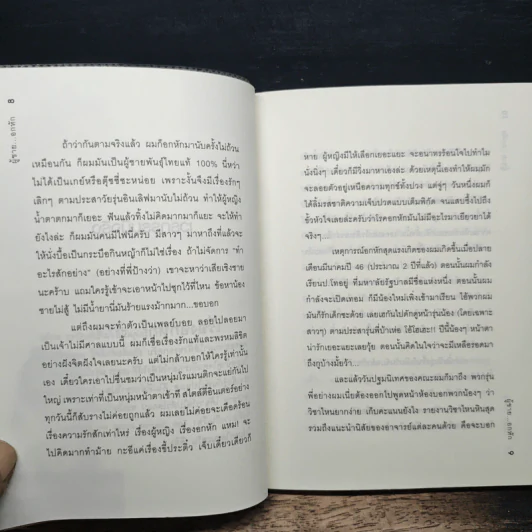 8
ผู้ชาย...อกหัก
ถ้าว่ากันตามจริงแล้ว ผมก็อกหักมานับครั้งไม่ถ้วน
เหมือนกัน ก็ผมมันเป็นผู้ชายพันธุ์ไทยแท้ 100% นี่หว่า
ไม่ได้เป็นเกย์หรือตุ๊ชชี่ซะหน่อย เพราะงั้นจึงมีเรื่องรักๆ
เลิกๆ ตามประสาวัยรุ่นอินเลิฟมานับไม่ถ้วน ทำให้ผู้หญิง
น้ำตาตกมาก็เยอะ ฟันแล้วทิ้งไม่คิดมากมาก็แยะ จะให้ทำ
ยังไงล่ะ ก็ผมมันคนมีไฟนี่ครับ มีสาวๆ มาหาถึงที่แล้วจะ
ให้นั่งบื้อเป็นกระบือกินหญ้าก็ไม่ใช่เรื่อง ถ้าไม่จัดการ "ทำ
อะไรสักอย่าง" (อย่างที่พี่ป้างว่า) เขาจะหาว่าเสียเชิงชาย
นะคร้าบ แถมใครรู้เข้าจะเอาหน้าไปซุกไว้ที่ไหน ข้อหาน้อง
ชายไม่สู้ ไม่มีน้ำยานี่มันร้ายแรงม้ากมาก...ขอบอก
แต่ถึงผมจะทำตัวเป็นเพลย์บอย ลอยไปลอยมา
เป็นเจ้าไม่มีศาลแบบนี้ ผมก็เชื่อเรื่องรักแท้และพรหมลิขิต
อย่างฝังจิตฝังใจเลยนะครับ แต่ไม่กล้าบอกให้ใครรู้เท่านั้น
เอง เดี๋ยวใครเอาไปซื่นชมว่าเป็นหนุ่มโรแมนติกจะแย่กันไป
ใหญ่ เพราะเท่าที่เป็นหนุ่มหน้าตาเข้าที สไตล์ตี๋อินเตอร์อย่าง
ทุกวันนี้ก็สับรางไม่ค่อยถูกแล้ว ผมเลยไม่ค่อยจะเดือดร้อน
เรื่องความรักสักเท่าไหร่ เรื่องผู้หญิง เรื่องอกหัก แหม! จะ
ไปคิดมากทำม้าย กะอีแค่เรื่องขี้ประติ๋ว เจ็บเดี๋ยวเดียวก็
หาย ผู้หญิงมีให้เลือกเยอะแยะ จะอนาทรร้อนใจไปทำไม
นั่งนิ่งๆ เดี๋ยวก็มีวิ่งมาหาเองล่ะ ด้วยเหตุนี้เองทำให้ผมมัก
จะลอยตัวอยู่เหนือความทุกข์ทั้งปวง แต่จู่ๆ วันหนึ่งผมก็
ได้ลิ้มรสชาติความเจ็บปวดแบบเต็มพิกัด จนแสบซึ้งไปถึง
ขั้วหัวใจเลยล่ะครับว่าโรคอกหักมันไม่มีอะไรมาเยียวยาได้
จริงๆ
เหตุการณ์อกหักสุดแรงเกิดของผมเกิดขึ้นเมื่อปลาย
เดือนมีนาคมปี 46 (ประมาณ 2 ปีที่แล้ว) ตอนนั้นผมกำลัง
เรียนป.โทอยู่ ที่มหาลัยรัฐบาลมีชื่อแห่งหนึ่ง ตอนนั้นผม
กำลังจะเปิดเทอม ก็มีน้องใหม่เพิ่งเข้ามาเรียน ไอ้พวกผม
มันก็รักเด็กซะด้วย เลยเฮกันไปดักดูหน้ารุ่นน้อง (โดยเฉพาะ
สาวๆ) ตามประสารุ่นพี่บ้าเห่อ โอ้โฮเฮะ! ปีนี้น้องๆ หน้าตา
น่ารักเยอะแยะเลยวุ้ย ตอนนั้นคิดในใจว่าจะมีเหลือรอดมา
ถึงกูบ้างมั้ยว้า...
และแล้ววันปฐมนิเทศของคณะผมก็มาถึง พวกรุ่น
พี่อย่างผมเนี่ยต้องออกไปพูดหน้าห้องบอกพวกน้องๆ ว่า
วิชาไหนยากง่าย เก็บคะแนนยังไง รายงานวิชาไหนหินสุด
รวมถึงแนะนำนิสัยของอาจารย์แต่ละคนด้วย คือจะบอก
ผู้ชาย...อกหัก
9